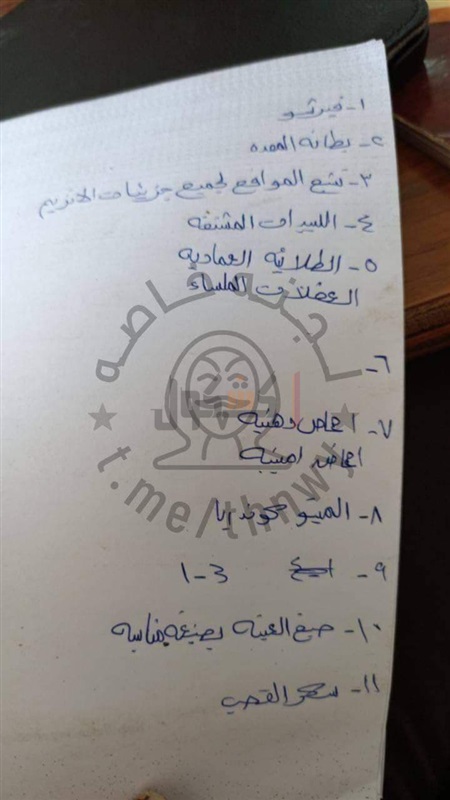 ١- فيرشو
٢- بطانه المعده
٣- تشبع المواقع لجميع جزيئات الانزيم
٤- اللبيدات المشتقه
٥- الطلائيه العماديه
العضلات الملساء
٦-
٧- احماض دهنيه
احماض امينيه
٨- الميتوكوندريا
٩- 1-3
١٠- صبغ العينه بصبغه مناسبه
١١- سكر القصب
لجنه خاصه
t.me/thnwy